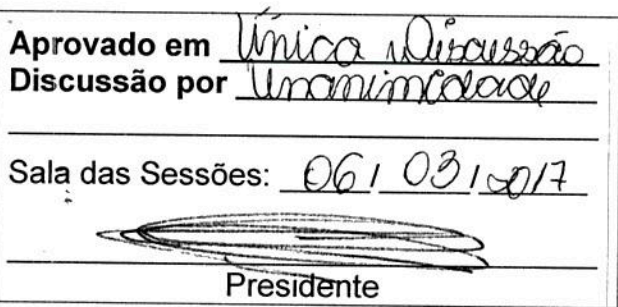 Aprovado em Única Discussão
Discussão por Unanimidade
Sala das Sessões: 06 / 03 / 2017
Presidente